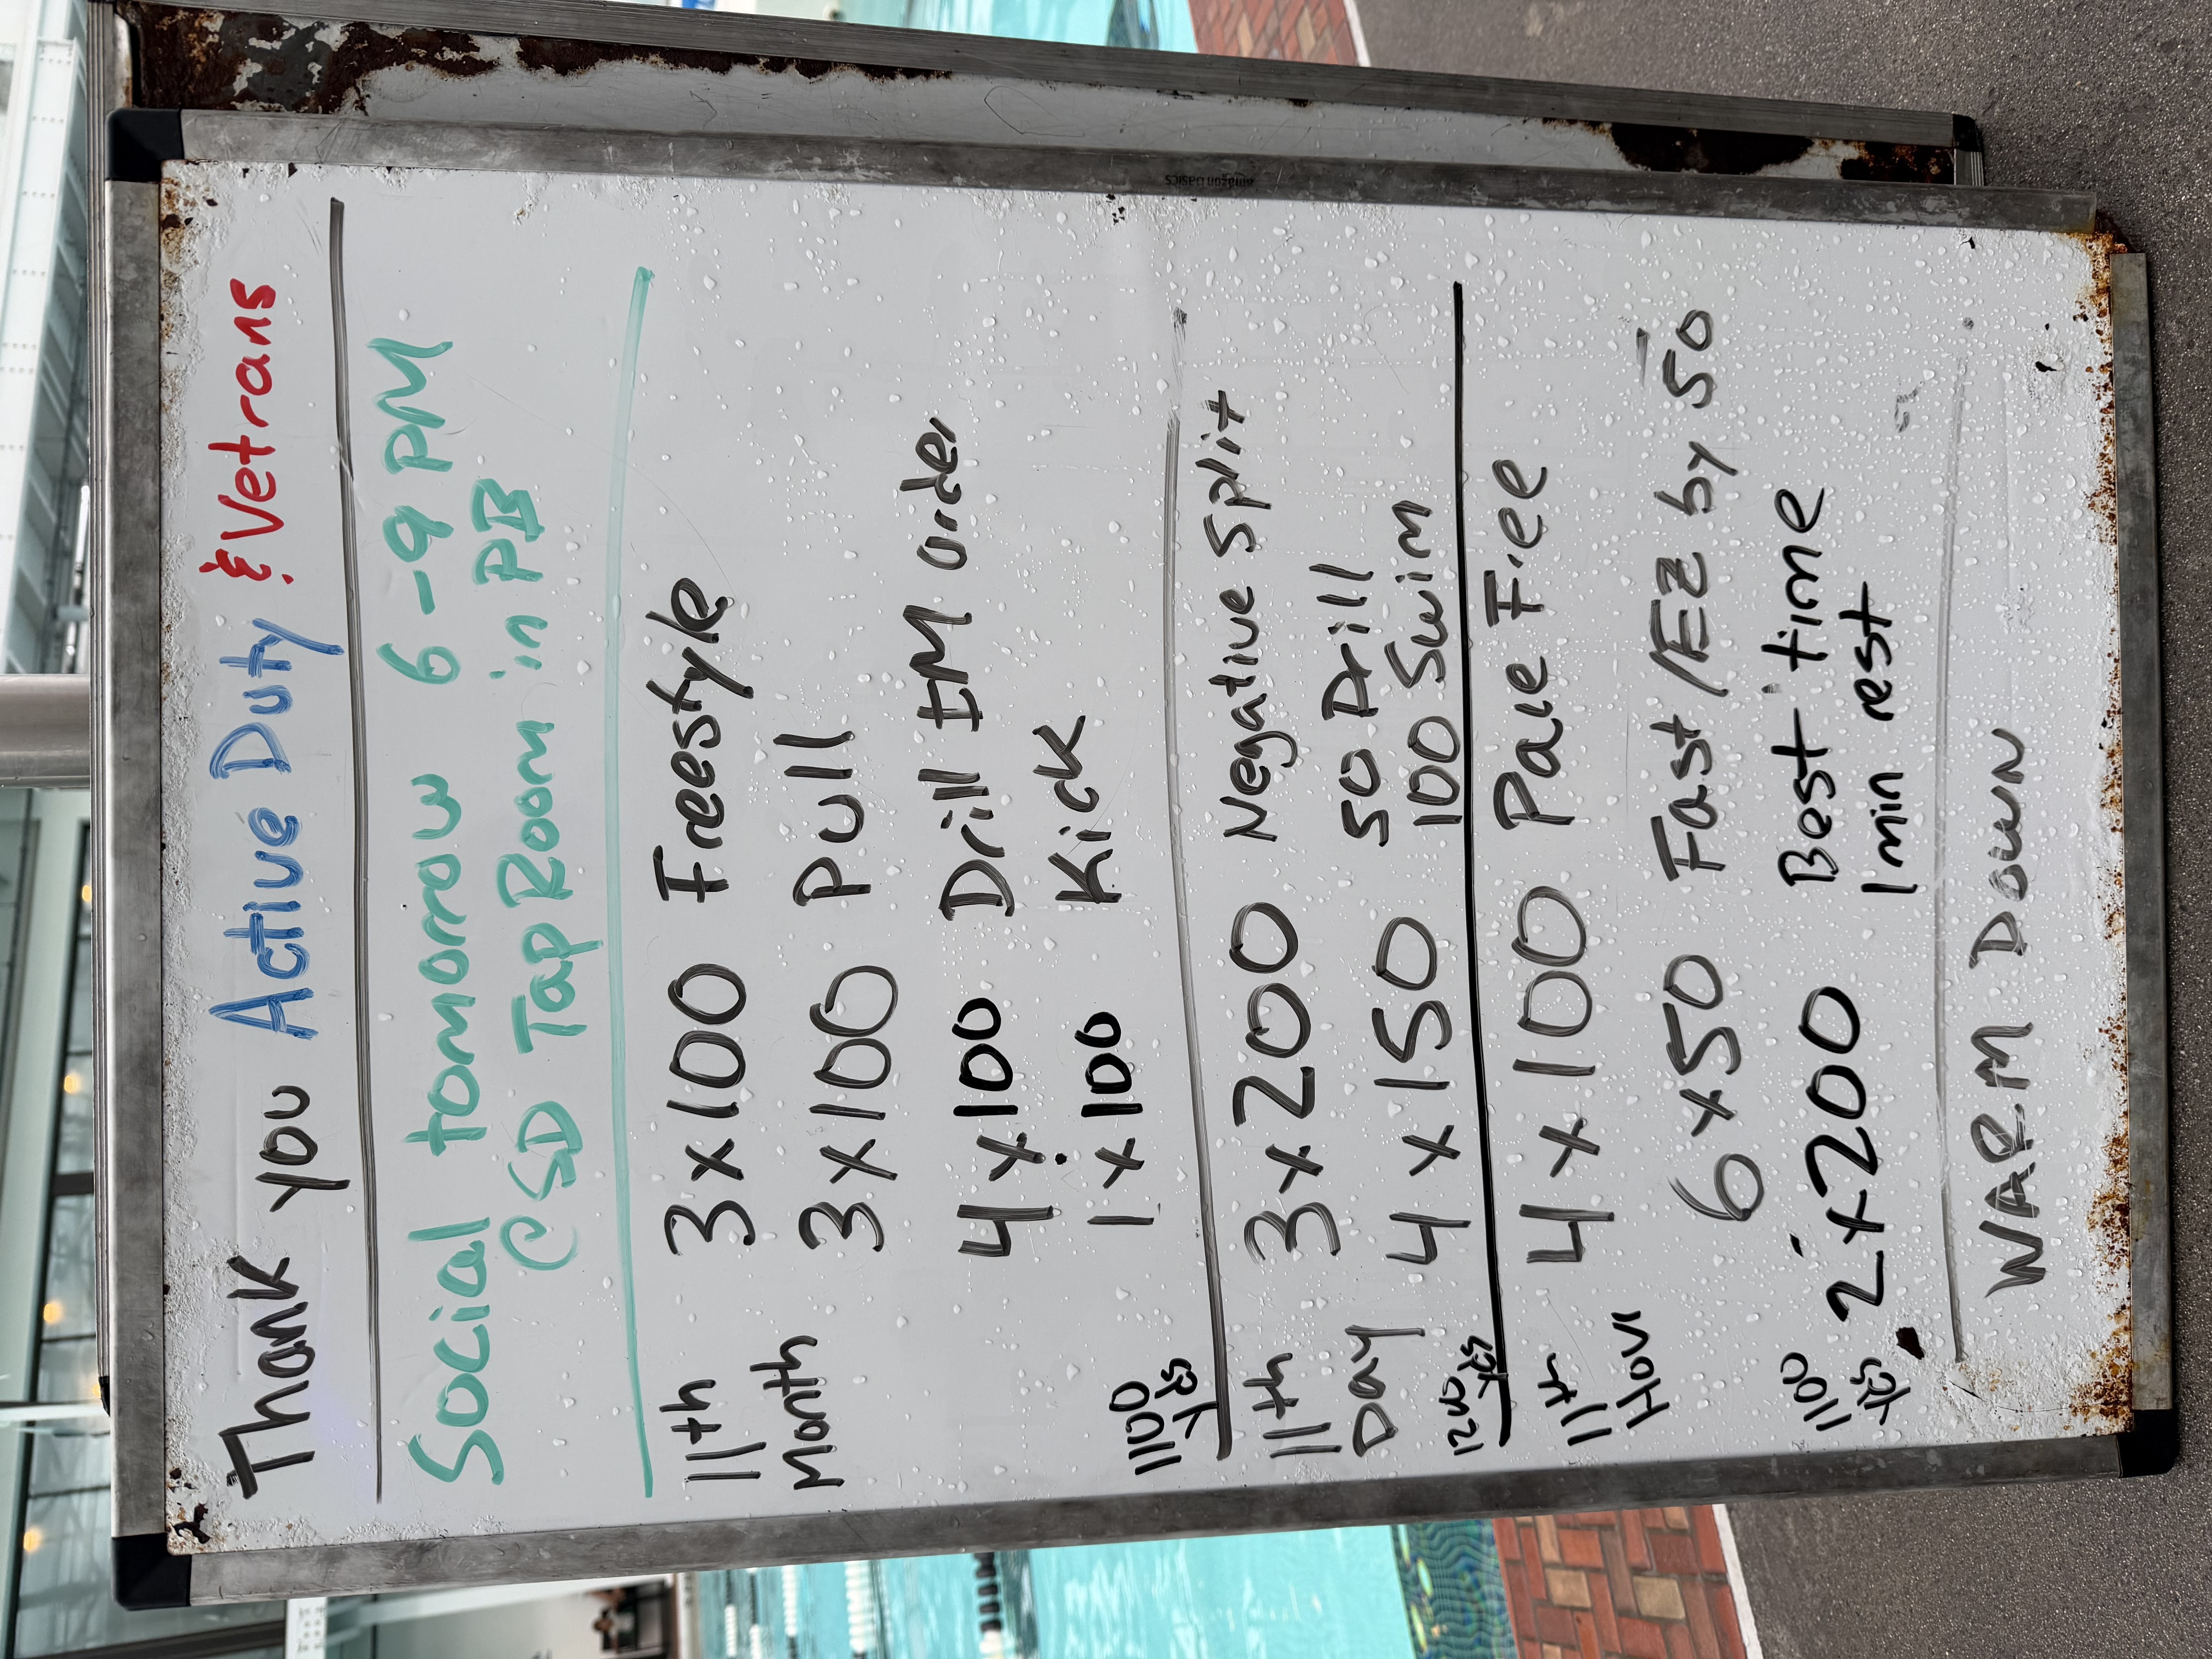 Thank you Active Duty & Vetrans
Social tomorrow 6-9 PM
@ SD Tap Room in PB
11th Month 3x100 Freestyle
3x100 Pull
4x100 Drill IM order
1x100 Kick
1100 Yds
11th Day 3x200 Negative Split
4x150 50 Drill
100 Swim
1200 Yds
11th Hour 4x100 Pace Free
6x50 Fast/EZ by 50
1100 Yds 2x200 Best time
1 min rest
WARM DOWN
amazon basics